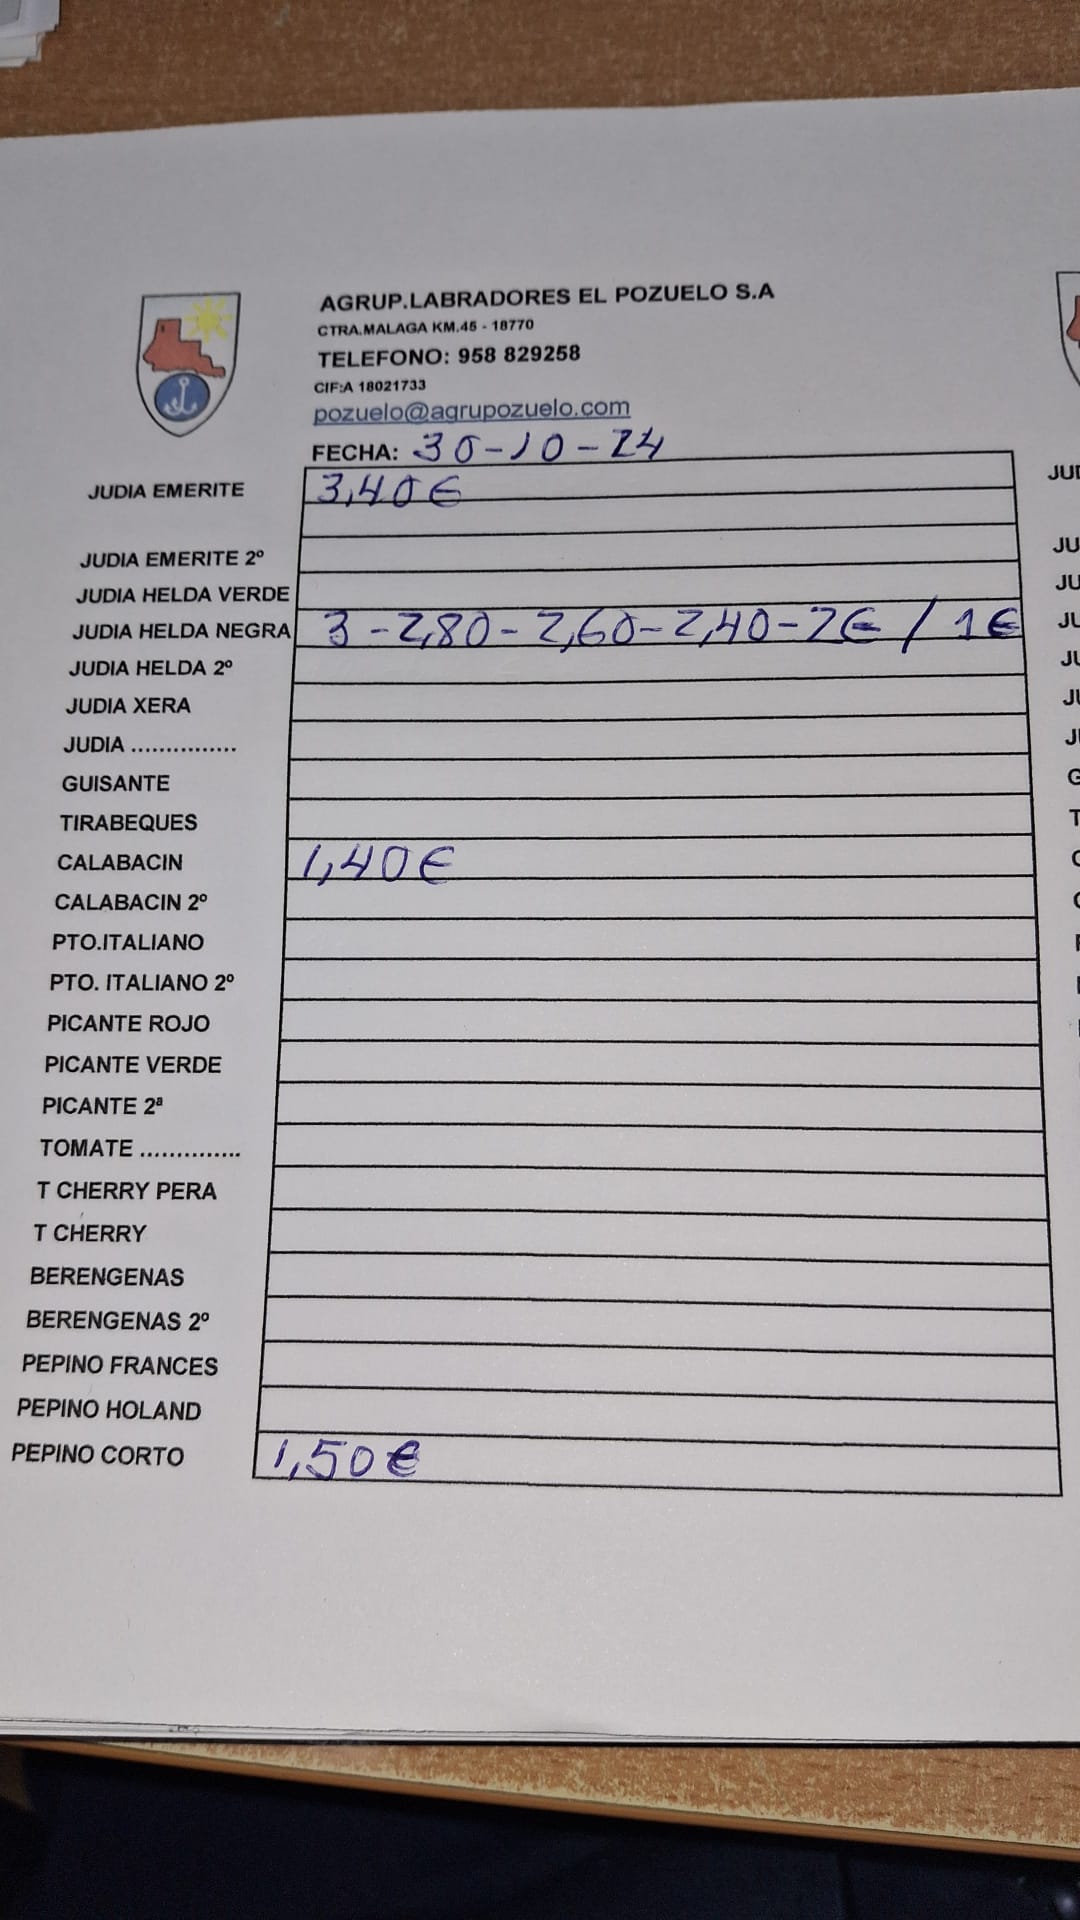 AGRUP.LABRADORES EL POZUELO S.A
CTRA.MALAGA KM.45 - 18770
TELEFONO: 958 829258
CIF:A 18021733
pozuelo@agrupozuelo.com
FECHA: 30-10-24
JUDIA EMERITE 3,40€
JUDIA EMERITE 2º
JUDIA HELDA VERDE
JUDIA HELDA NEGRA 3-2,80-2,60-2,40-2€ / 1€
JUDIA HELDA 2º
JUDIA XERA
JUDIA ...............
GUISANTE
TIRABEQUES
CALABACIN 1,40€
CALABACIN 2º
PTO.ITALIANO
PTO. ITALIANO 2º
PICANTE ROJO
PICANTE VERDE
PICANTE 2ª
TOMATE ..............
T CHERRY PERA
T CHERRY
BERENGENAS
BERENGENAS 2º
PEPINO FRANCES
PEPINO HOLAND
PEPINO CORTO 1,50€